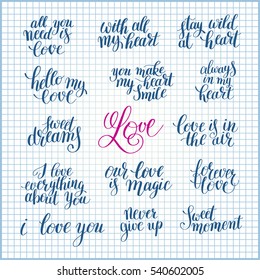 all you
need is
love
with all
my heart
stay wild
at heart
hello my
love
you make
my heart
smile
always
in my
heart
sweet
dreams
Love
love is in
the air
I love
everything
about you
our love
is magic
forever
love
i love you
never
give up
Sweet
moment
shutterstock.com · 540602005